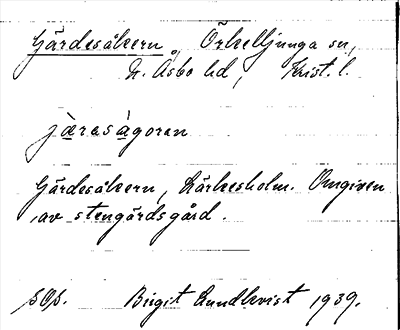 Gärdesåkern, Örkelljunga sn,
N. Åsbo hd, Krist. l.
jærasågoran
Gärdesåkern, Lärkesholm. Omgiven
av stengärdsgård.
Birgit Lundkvist 1939.